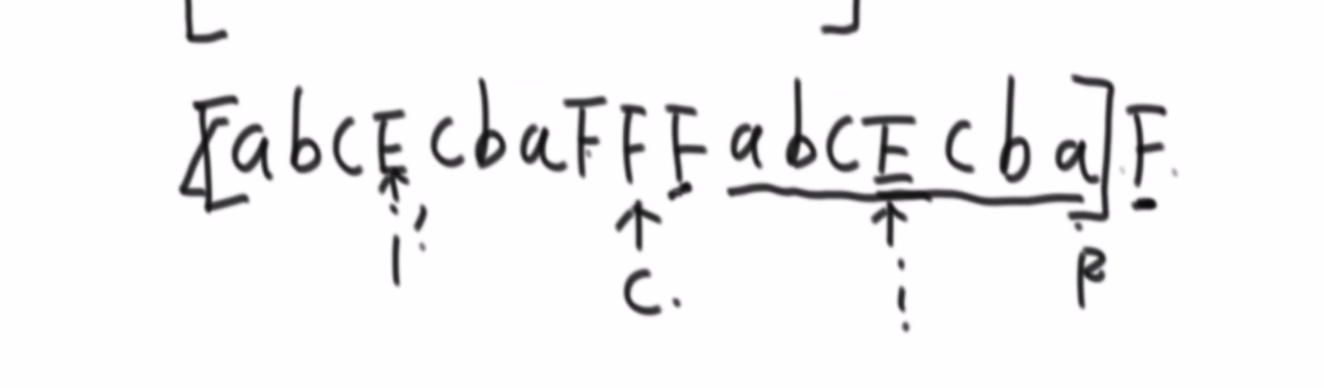 [ ]
[ a b c E c b a F F F a b c E c b a ] F
i' C. i R